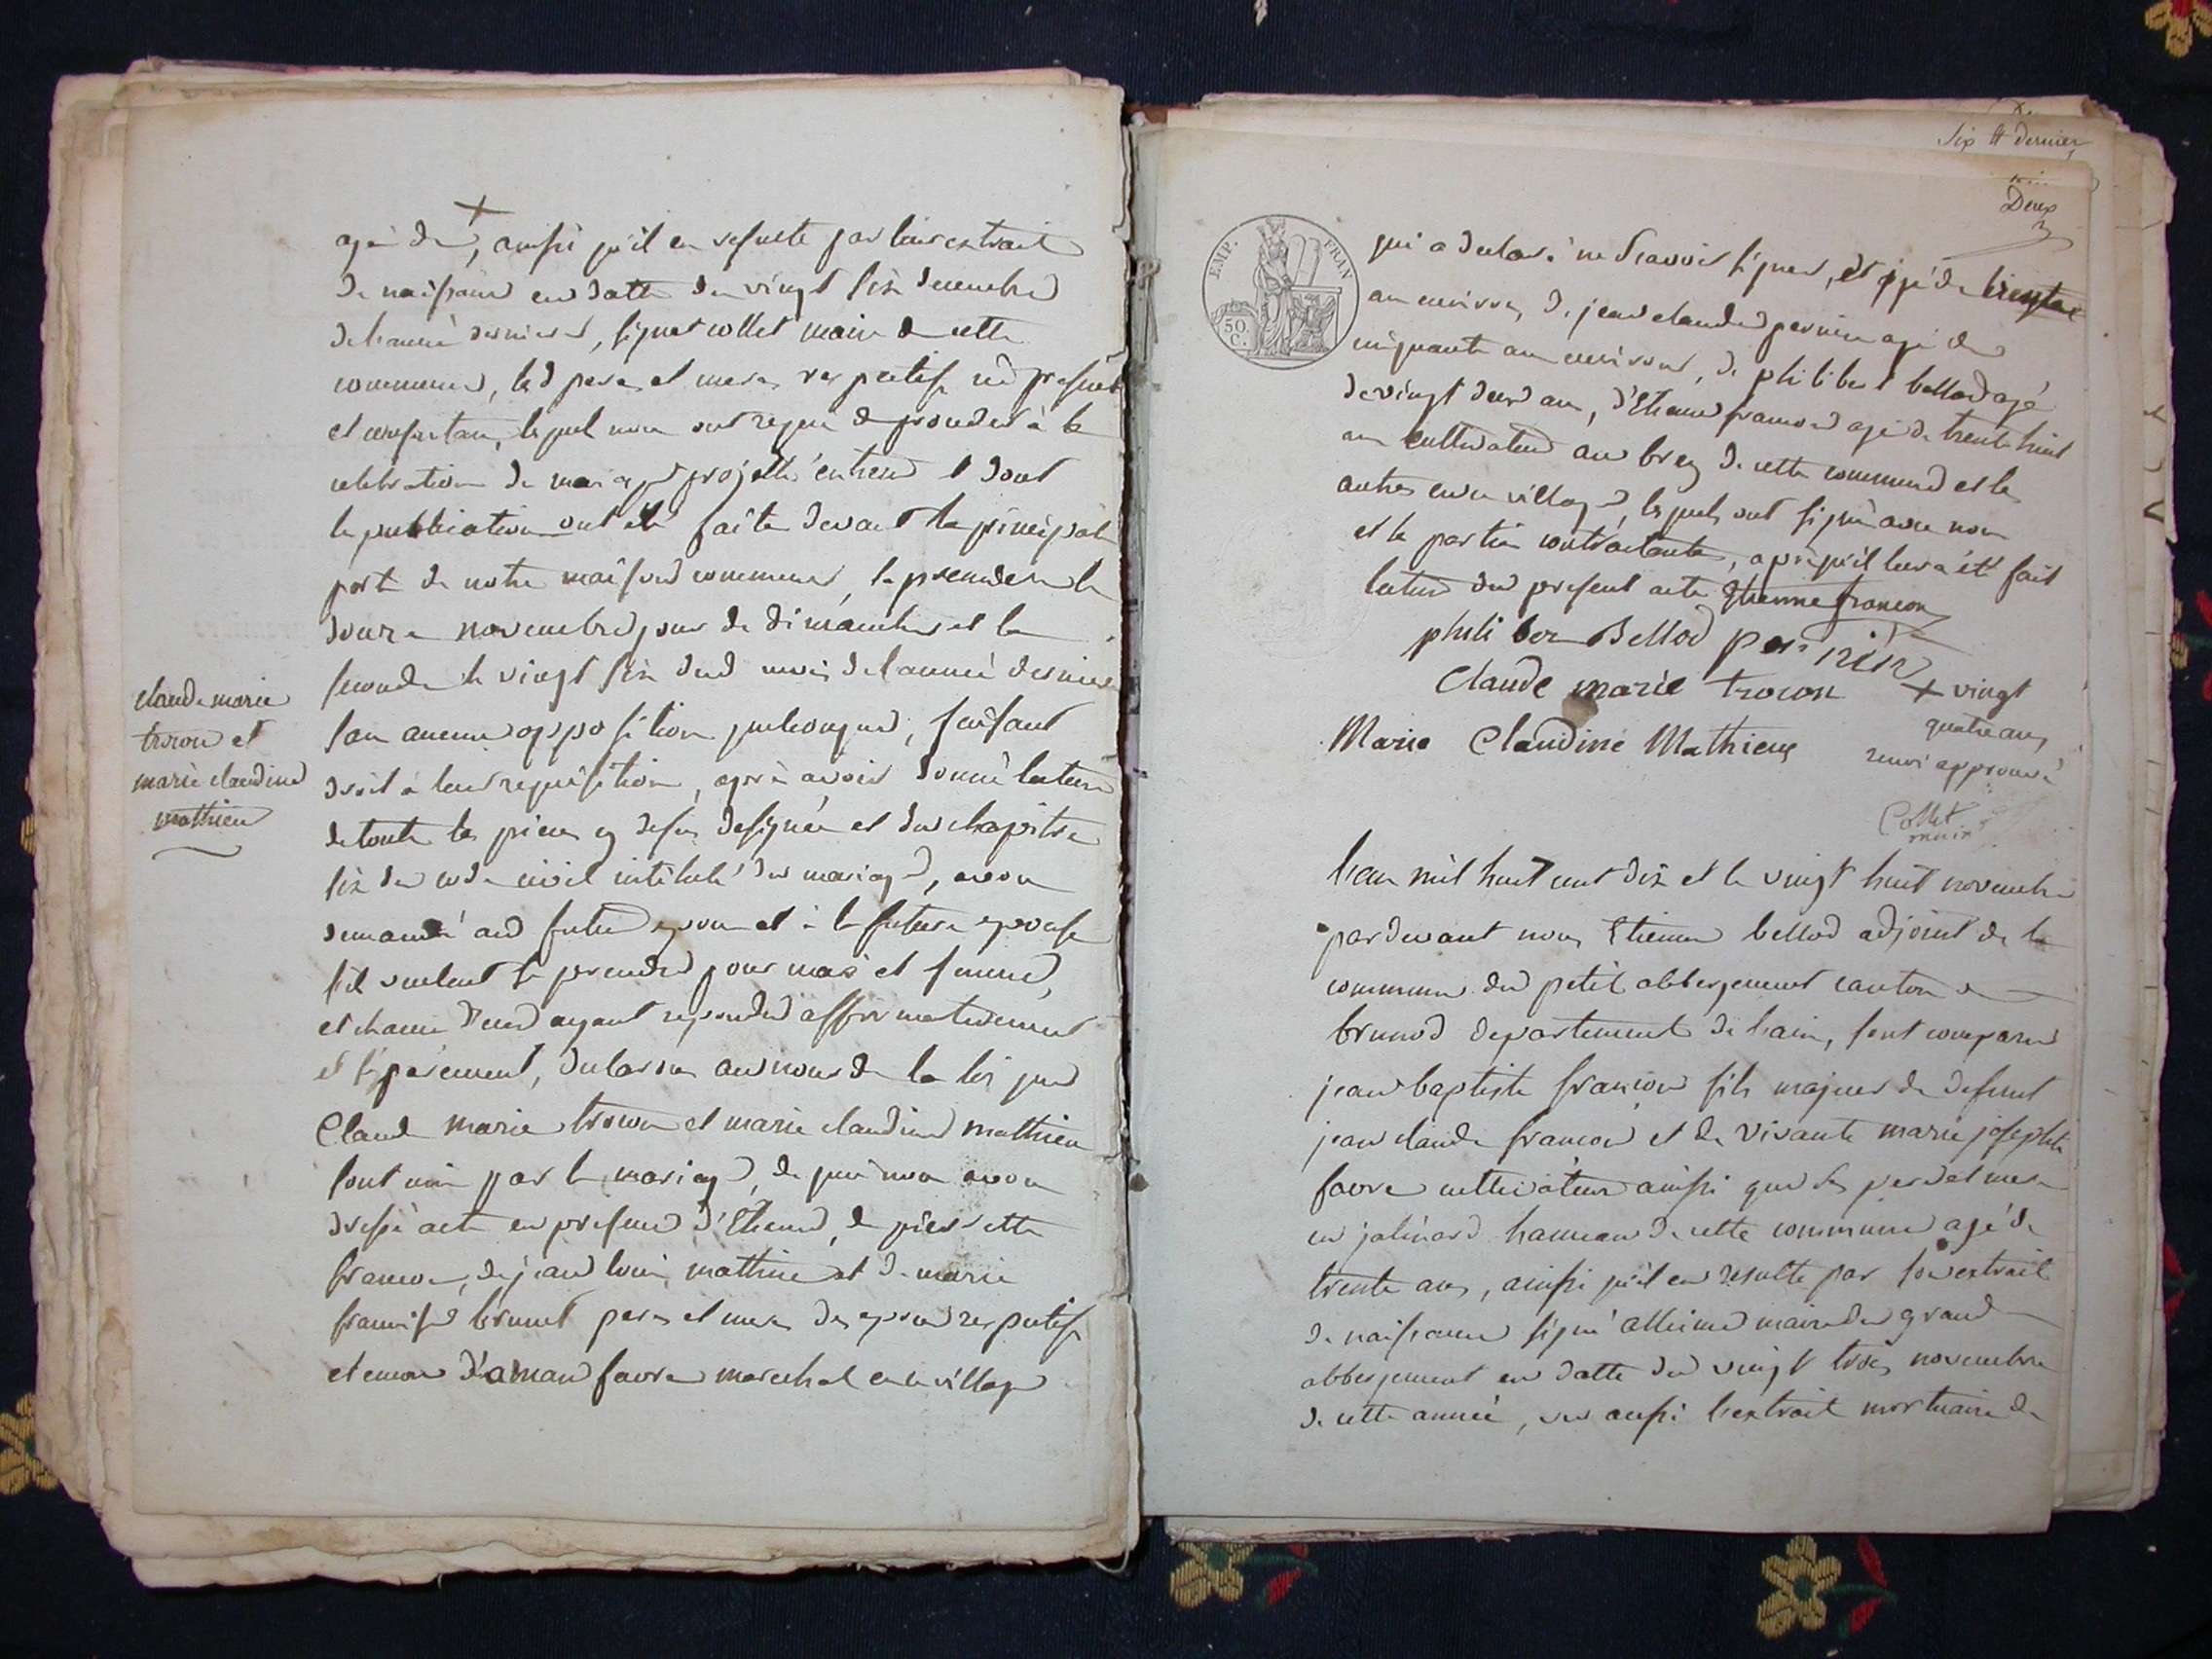 agé de +, ainsi qu'il en resulte par leur extrait
de naissance en datte du vingt six decembre
de l'année derniere, signet collet maire de cette
commune, les d peres et meres respectifs ici presents
et consentans, lesquels nous ont requis de proceder à la
celebration du mariage projetté entreux et dont
les publications ont été faites devant la principale
porte de notre maison commune, la premiere le
douze novembre jour de dimanche et la
seconde le vingt six dud mois de l'année derniere
sans aucune opposition quelconque, faisant
droit à leur requisition, après avoir donné lecture
de toutes les pieces cy dessus designées et du chapitre
six du code civil intitulé du mariage, avons
demandé aud futur epoux et à la future epouse
s'il veulent se prendre pour mari et femme,
et chacun d'eux ayant repondu affirmativement
et separement, declarons au nom de la loi que
Claude marie trocon et marie claudine mathieu
sont unis par le mariage, de quoi nous avons
dressé acte en presence d'Etienne, de pierrette
francon, de jean louis mathieu et de marie
françoise brunet peres et meres des epoux respectifs
et encore d'aman favre marechal en ce village
claude marie
trocon et
marie claudine
mathieu
Six et dernier
Deux
EMP. FRAN
50.
C.
qui a declaré ne scavoir signer, et agé de trente
ans environ, de jean claude pernin agé de
cinquante ans environ, de philibert bellod agé
de vingt deux ans, d'Etienne francon agé de trente huit
ans cultivateur au brey de cette commune et les
autres en ce village, lesquels ont signé avec nous
et les parties contractantes, après qu'il leur a été fait
lecture du present acte Etienne francon
phili ber Bellod per nin
Claude marie trocon + vingt
quatre ans
Marie Claudine Mathieux renvoi approuvé
Collet
maire
l'an mil huit cent dix et le vingt huit novembre
pardevant nous Etienne bellod adjoint de la
commune du petit abbergement canton de
brenod departement de l'ain, sont comparus
jean baptiste francon fils majeur de defunt
jean claude francon et de vivante marie josephte
favre cultivateur ainsi que ses pere et mere
en jalinard hameau de cette commune agé de
trente ans, ainsi qu'il en resulte par son extrait
de naissance signé maire du grand
abbergement en datte du vingt trois novembre
de cette année, vu aussi l'extrait mortuaire de